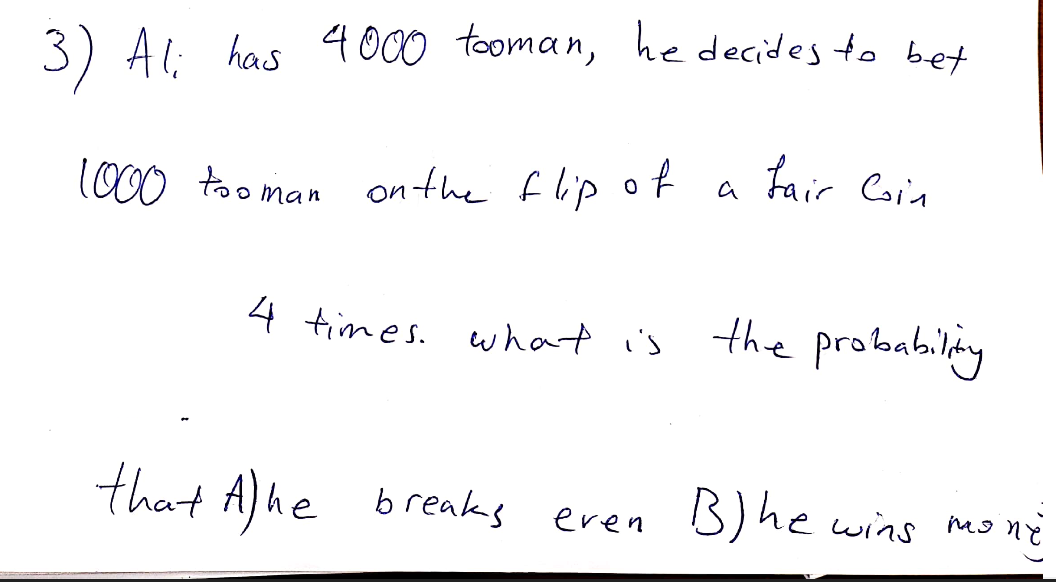 3) Ali has 4000 tooman, he decides to bet
1000 tooman on the flip of a fair Coin
4 times. what is the probability
that A) he breaks even B) he wins money